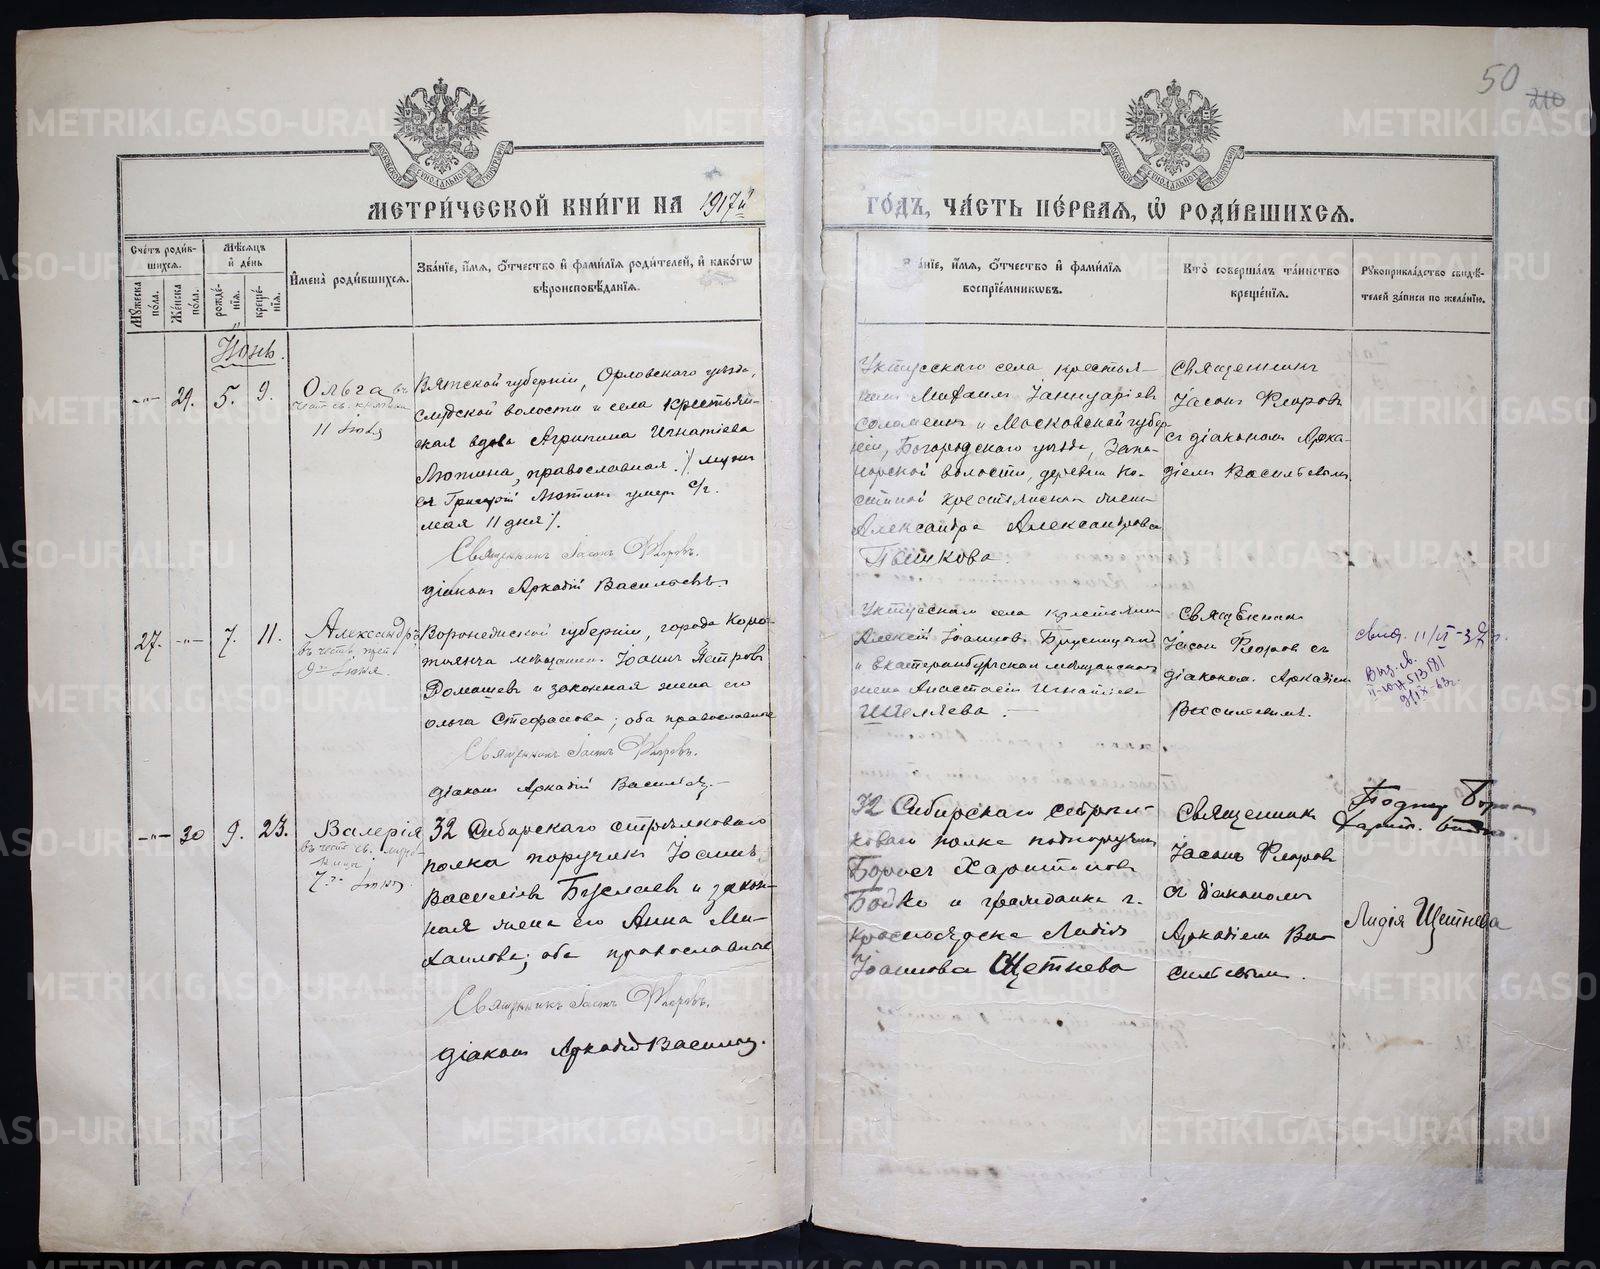 50
210
МЕТРИ́ЧЕСКОЙ КНИ́ГИ НА 1917й
ГО́ДЪ, ЧА́СТЬ ПЕ́РВАЯ, Ѡ҆ РОДИ́ВШИХСЯ.
Сче́тъ роди́в-
шихся.
Му́жеска по́ла.
Же́нска по́ла.
Мѣ́сяцъ
и҆ де́нь
рожде́-
нїя.
креще́-
нїя.
И҆мена̀ роди́вшихся.
Зва́нїе, и҆́мя, ѻ҆́тчество и҆ фами́лїя роди́телей, и҆ како́гѡ
вѣроисповѣ́данїя.
Зва́нїе, и҆́мя, ѻ҆́тчество и҆ фами́лїя
воспрїе́мникѡвъ.
Кто̀ соверша́лъ та́инство
креще́нїя.
Рꙋкоприкла́дство свидѣ́-
телей за́писи по жела́нїю.
Іюнь.
29.
5.
9.
Ольга въ
11 Іюля
Вятской губерніи, Орловскаго уѣзда,
волости и села крестьян-
ская вдова Агрипина Игнатіева
Лютина, православная. /. мужъ
ея Григорій Лютинъ умеръ с/г.
мая 11 дня /.
Священникъ Іасонъ Флоровъ.
діаконъ Аркадій Васильевъ
Уктусскаго села крестья-
нинъ Михаилъ Іаннуаріевъ
и Московской губер-
ніи, Богородскаго уѣзда, Запо-
норской волости, деревни
крестьянская
Александра Александрова
Пѣшкова.
Священникъ
Іасонъ Флоровъ
съ діакономъ Арка-
діемъ Васильевымъ
27.
7.
11.
Александръ
въ честь
9го Іюня.
Воронежской губерніи, города Коро-
тояка мѣщанинъ Іоаннъ Петровъ
Домашевъ и законная жена его
Ольга Стефанова; оба православные
Священникъ Іасонъ Флоровъ.
діаконъ Аркадій Васильевъ.
Уктусскаго села крестьянинъ
Алексій Іоанновъ Брусницынъ
и Екатеринбургская мѣщанская
жена Анастасія Игнатіева
Шеляева.
Священникъ
Іасонъ Флоровъ съ
діакономъ Аркадіемъ
Васильевымъ.
свид. 11/VI-37г.
Выд. св.
II-ЮА 513181
9/IX-63г.
30
9.
23.
Валерія
въ честь св. муче-
ницы
7го Іюня
32 Сибирскаго стрѣлковаго
полка поручикъ Іоаннъ
Василіевъ Буслаевъ и закон-
ная жена его Анна Ми-
хаилова; оба православные
Священникъ Іасонъ Флоровъ.
діаконъ Аркадій Васильевъ.
32 Сибирскаго стрѣл-
коваго полка подпоручикъ
Борисъ Харитоновъ
Бойко и гражданка г.
Красноярска Лидія
Іоаннова Щетнева
Священникъ
Іасонъ Флоровъ
съ діакономъ
Аркадіемъ Ва-
сильевымъ.
Подпор. Борис
Харит. Бойко
Лидія Щетнева
METRIKI.GASO-URAL.RU